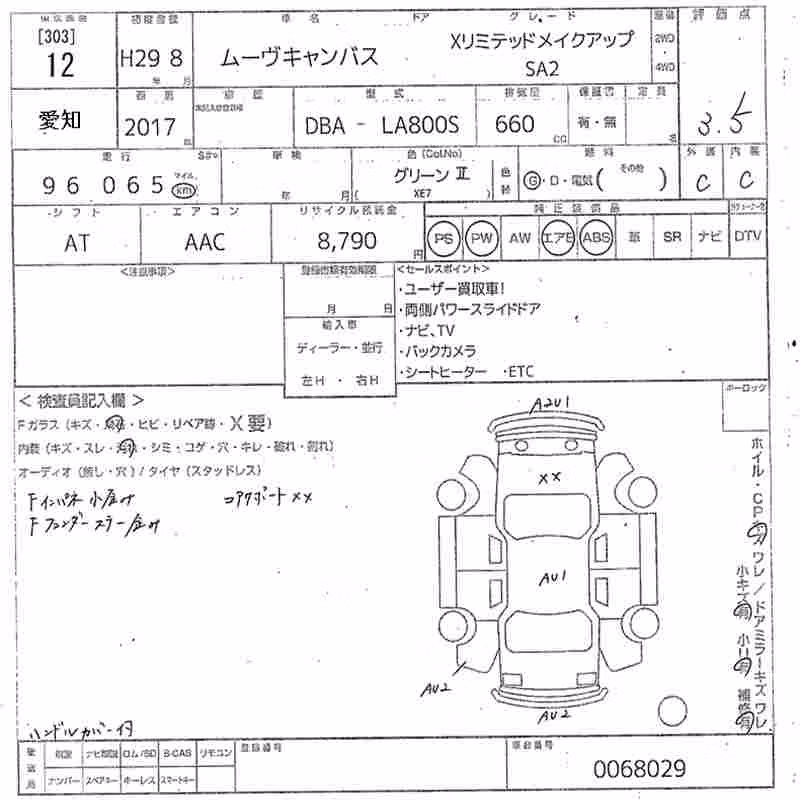 [303]
12
初度登録
H29 8
年 月
車名
ムーヴキャンバス
ドア
グレード
Xリミテッドメイクアップ
SA2
装備
2WD
4WD
評価点
3.5
愛知
2017
型式
DBA - LA800S
排気量
660
CC
保証書
有・無
定員
名
走行
96 065
マイル
km
車検
年 月
色(Col.No)
グリーンⅡ
( XE7 )
色替
燃料
G・D・電気( その他 )
外装
C
内装
C
シフト
AT
エアコン
AAC
リサイクル預託金
8,790
円
純正装備品
PS PW AW エアB ABS 革 SR ナビ DTV
<注意事項>
月 日
輸入車
ディーラー・並行
左H ・ 右H
<セールスポイント>
・ユーザー買取車!
・両側パワースライドドア
・ナビ、TV
・バックカメラ
・シートヒーター ・ETC
コーロック
<検査員記入欄>
Fガラス(キズ・飛石・ヒビ・リペア跡・X要)
内装(キズ・スレ・汚れ・シミ・コゲ・穴・キレ・破れ・割れ)
オーディオ(無し・穴)/タイヤ(スタッドレス)
Fインパネ 小凹み コアサポートxx
Fフェンダーステー凹み
A2U1
XX
AU1
AU2
AU2
ホイル・CPキズワレ/ドアミラーキズワレ
小キズ有 小凹有 補修有
ハンドルカバー付
取説 ナビ取説 ロム/SD B-CAS リモコン
ナンバー スペアキー ホーレス スマートキー
登録番号
車台番号
0068029